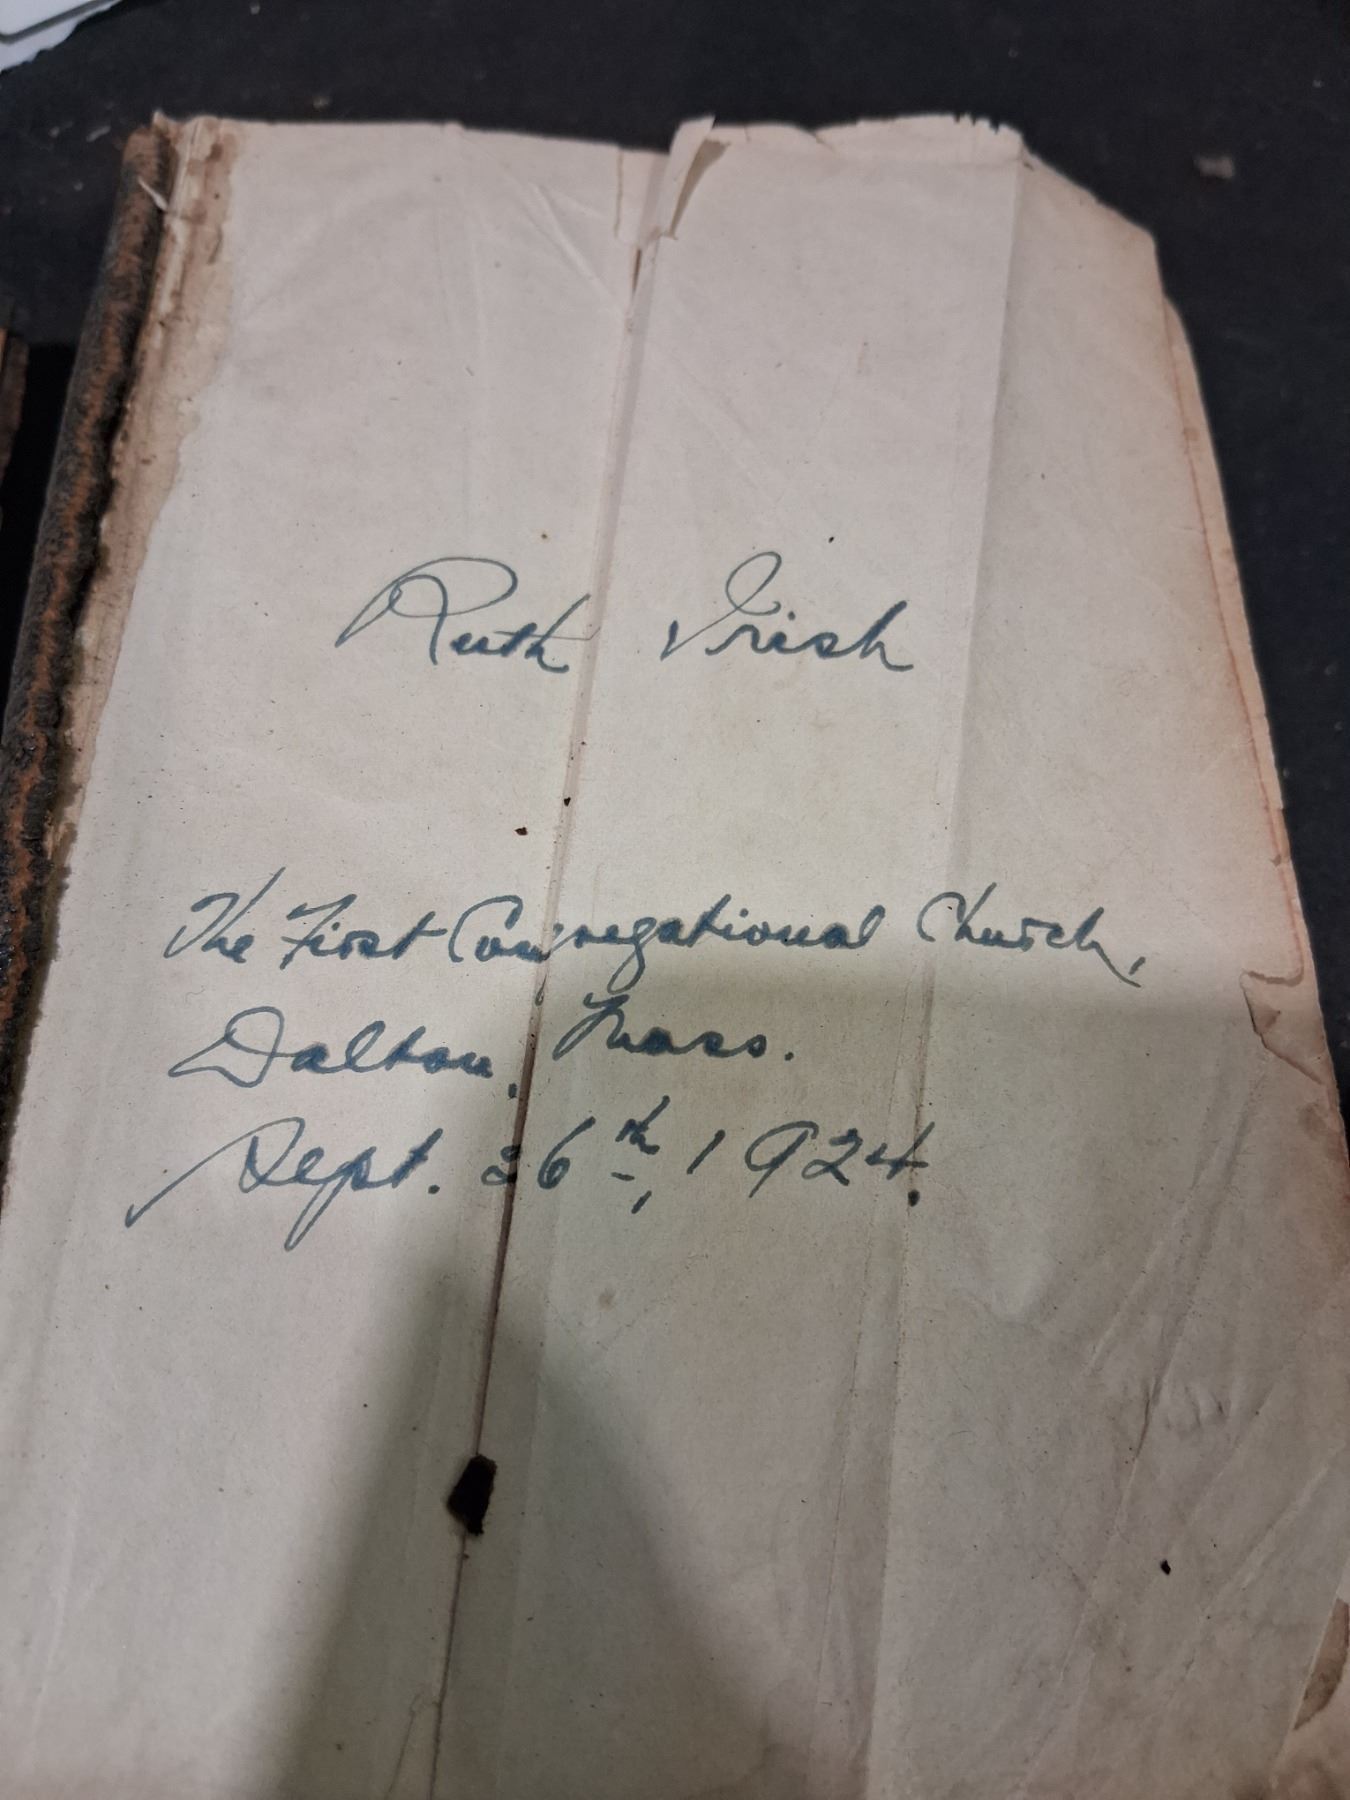 Ruth Irish
The First Congregational Church,
Dalton, Mass.
Sept. 26th, 1924.